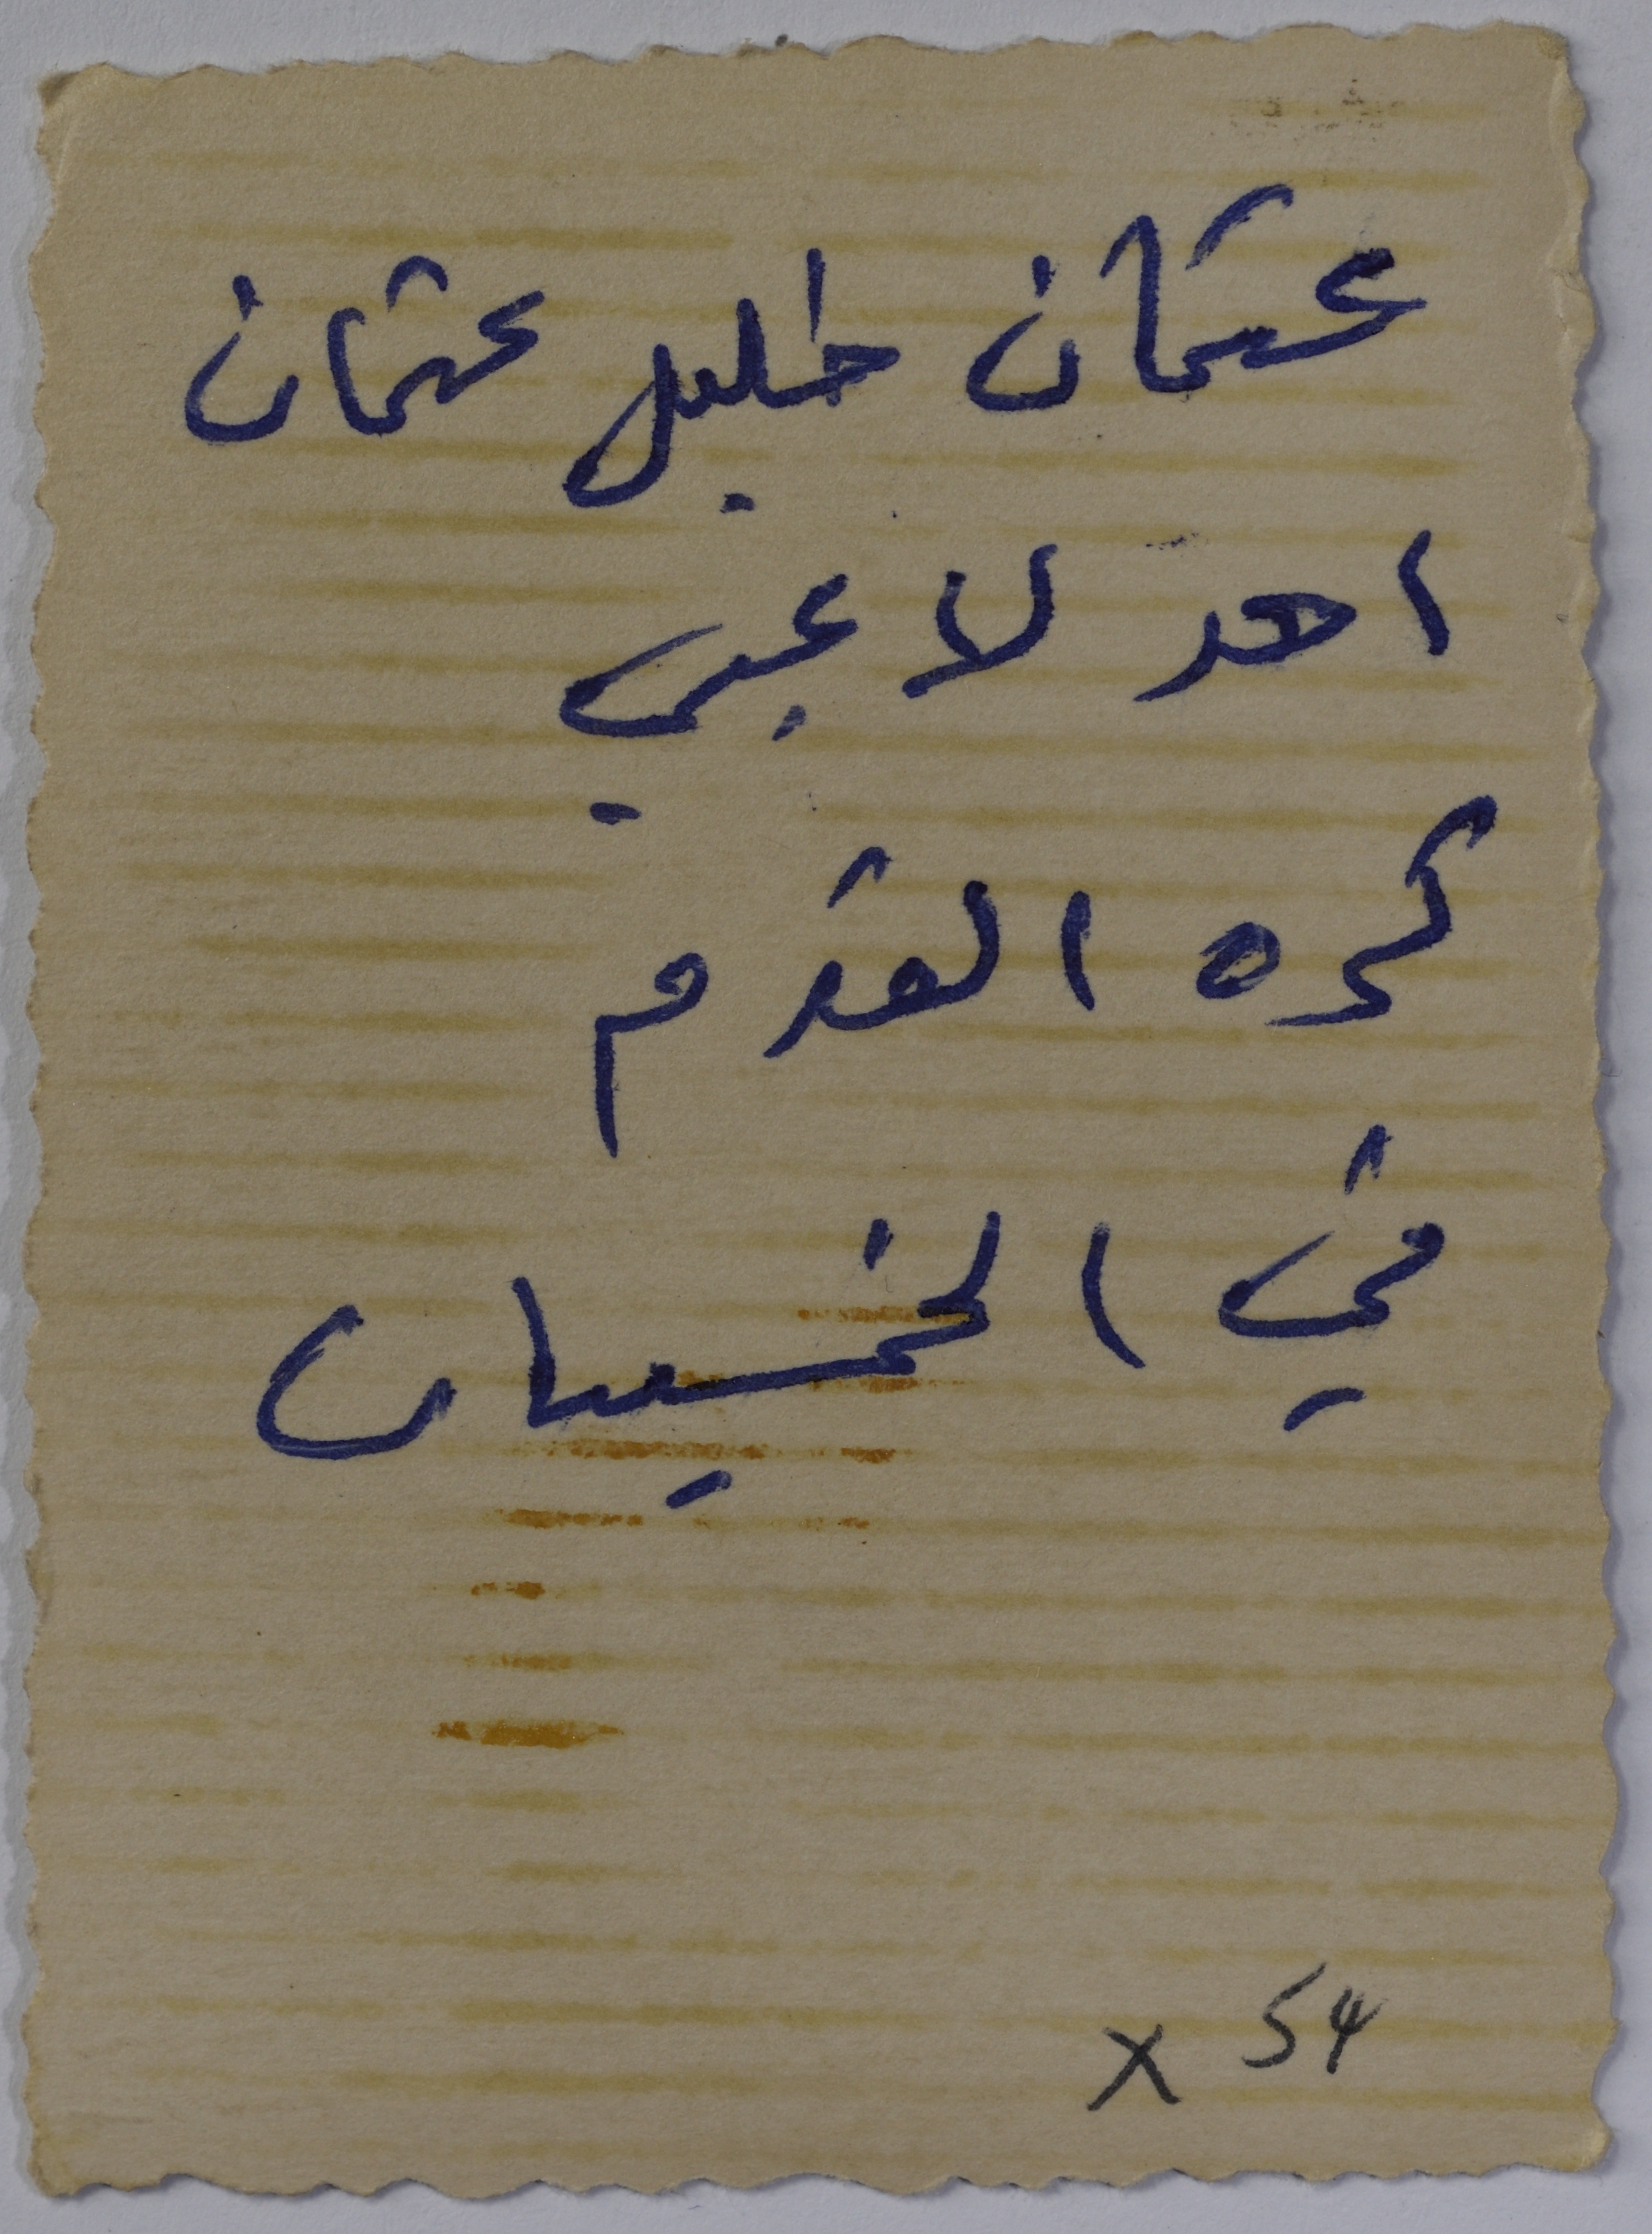 عثمان خليل عثمان
احد لاعبي
كره القدم
في الخمسينات
54 X